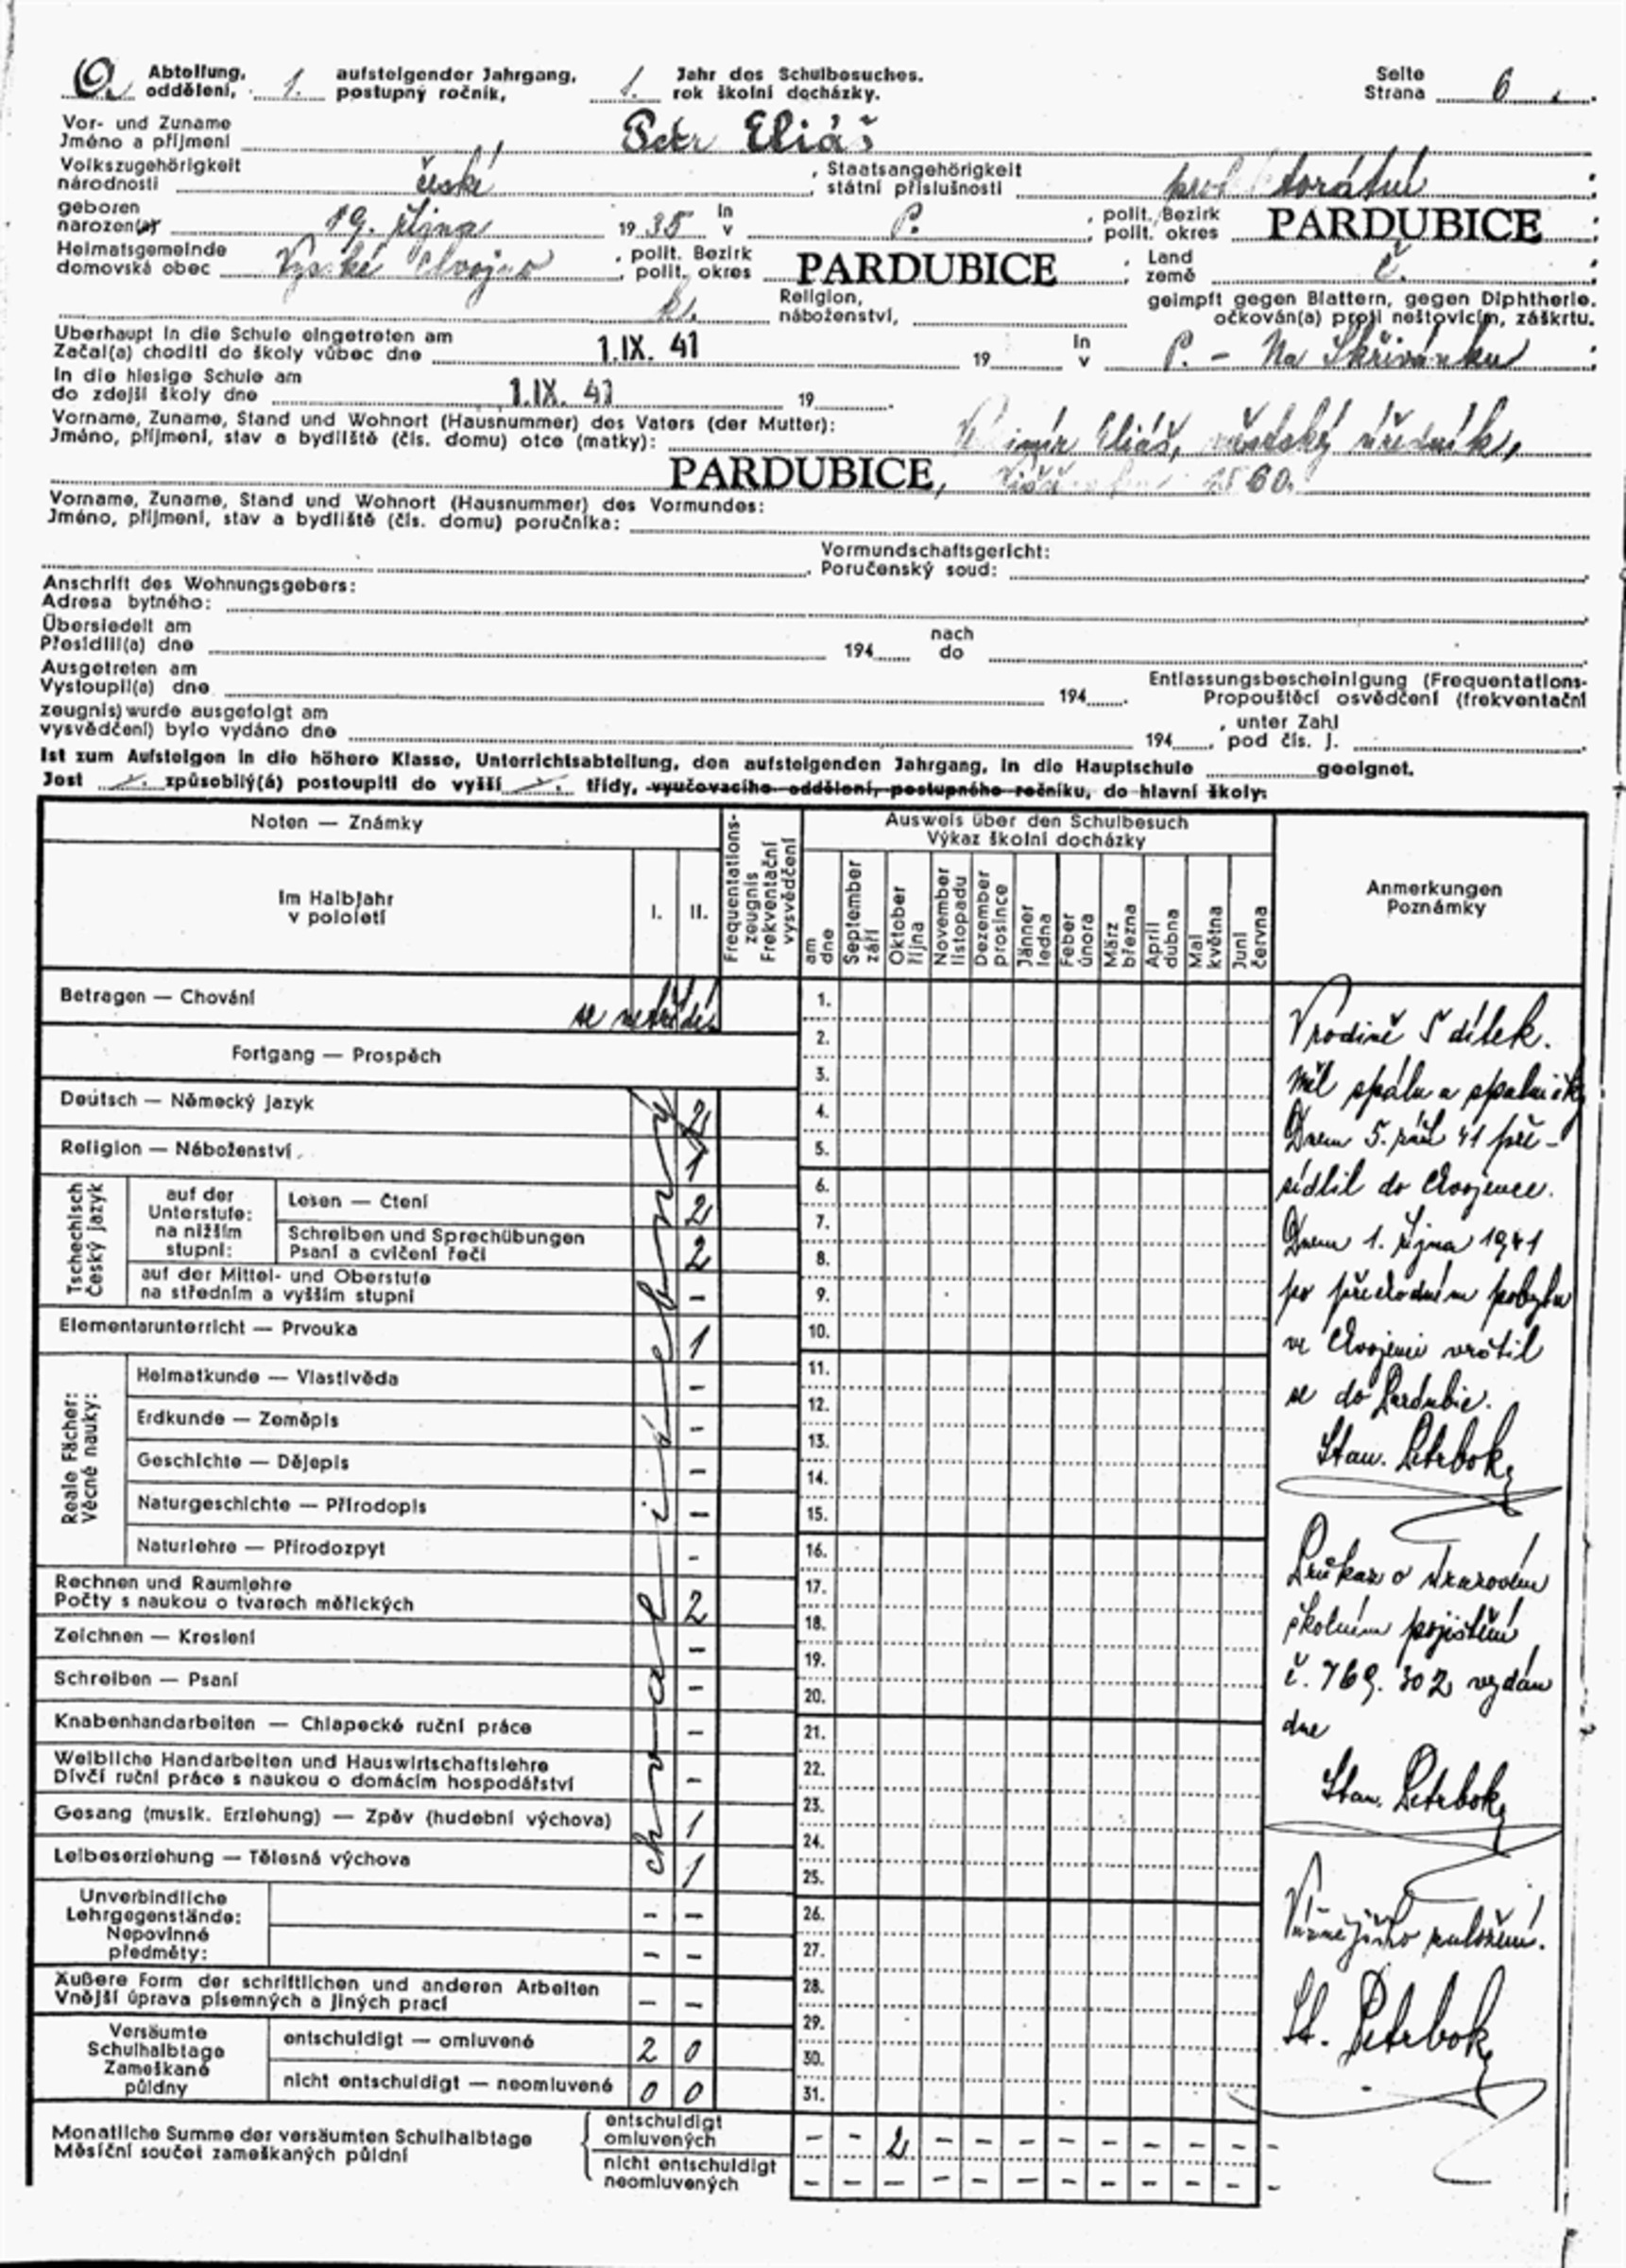 Abteilung, 1. aufsteigender Jahrgang, 1. Jahr des Schulbesuches. Seite
oddělení, postupný ročník, rok školní docházky. Strana 6.
Vor- und Zuname
Jméno a příjmení Petr Eliáš
Volkszugehörigkeit , Staatsangehörigkeit
národnosti české státní příslušnosti
geboren in , polit. Bezirk
narozen(a) 19. října 1935 v P. polit. okres PARDUBICE ;
Heimatsgemeinde , polit. Bezirk , Land
domovská obec polit. okres PARDUBICE země č. ;
Religion, geimpft gegen Blattern, gegen Diphtherie.
náboženství, očkován(a) proti neštovicím, záškrtu.
Überhaupt in die Schule eingetreten am in
Začal(a) choditi do školy vůbec dne 1.IX. 41 19 v P. - Na Skřivánku ;
In die hiesige Schule am
do zdejší školy dne 1.IX. 41 19
Vorname, Zuname, Stand und Wohnort (Hausnummer) des Vaters (der Mutter):
Jméno, příjmení, stav a bydliště (čís. domu) otce (matky): Eliáš, úředník,
PARDUBICE, 1560.
Vorname, Zuname, Stand und Wohnort (Hausnummer) des Vormundes:
Jméno, příjmení, stav a bydliště (čís. domu) poručníka:
Vormundschaftsgericht:
Poručenský soud:
Anschrift des Wohnungsgebers:
Adresa bytného:
Übersiedelt am nach
Přesídlil(a) dne 194 do
Ausgetreten am Entlassungsbescheinigung (Frequentations-
Vystoupil(a) dne 194 Propouštěcí osvědčení (frekventační
zeugnis) wurde ausgefolgt am , unter Zahl
vysvědčení) bylo vydáno dne 194 pod čís. j.
Ist zum Aufsteigen in die höhere Klasse, Unterrichtsabteilung, den aufsteigenden Jahrgang, in die Hauptschule geeignet.
Jest způsobilý(á) postoupiti do vyšší třídy, vyučovacího oddělení, postupného ročníku, do hlavní školy:
Noten — Známky
Im Halbjahr
v pololetí
I. II.
Frequentations-
zeugnis
Frekventační
vysvědčení
Ausweis über den Schulbesuch
Výkaz školní docházky
am
dne
September
září
Oktober
října
November
listopadu
Dezember
prosince
Jänner
ledna
Feber
února
März
března
April
dubna
Mai
května
Juni
června
Anmerkungen
Poznámky
Betragen — Chování se netřídí
Fortgang — Prospěch
Deutsch — Německý jazyk 2
Religion — Náboženství 1
Tschechisch
Český jazyk
auf der
Unterstufe:
na nižším
stupni:
Lesen — Čtení 2
Schreiben und Sprechübungen
Psaní a cvičení řeči 2
auf der Mittel- und Oberstufe
na středním a vyšším stupni –
Elementarunterricht — Prvouka 1
Reale Fächer:
Věcné nauky:
Heimatkunde — Vlastivěda –
Erdkunde — Zeměpis –
Geschichte — Dějepis –
Naturgeschichte — Přírodopis –
Naturlehre — Přírodozpyt -
Rechnen und Raumlehre
Počty s naukou o tvarech měřických 2
Zeichnen — Kreslení –
Schreiben — Psaní –
Knabenhandarbeiten — Chlapecké ruční práce –
Weibliche Handarbeiten und Hauswirtschaftslehre
Dívčí ruční práce s naukou o domácím hospodářství –
Gesang (musik. Erziehung) — Zpěv (hudební výchova) 1
Leibeserziehung — Tělesná výchova 1
chvalitebný
Unverbindliche
Lehrgegenstände:
Nepovinné
předměty:
– –
– –
Äußere Form der schriftlichen und anderen Arbeiten
Vnější úprava písemných a jiných prací – –
Versäumte
Schulhalbtage
Zameškané
půldny
entschuldigt — omluvené 2 0
nicht entschuldigt — neomluvené 0 0
Monatliche Summe der versäumten Schulhalbtage
Měsíční součet zameškaných půldní
entschuldigt
omluvených – – 2 – – – – – – – –
nicht entschuldigt
neomluvených – – – – – – – – – – –
1.
2.
3.
4.
5.
6.
7.
8.
9.
10.
11.
12.
13.
14.
15.
16.
17.
18.
19.
20.
21.
22.
23.
24.
25.
26.
27.
28.
29.
30.
31.
V rodině 5 dítek.
Měl spálu a spalničky
Dnem 5. září 41 pře-
sídlil do Chvojence.
Dnem 1. října 1941
po přechodném pobytu
ve Chvojenci vrátil
se do Pardubic.
Stan. Petrbok
Průkaz o úrazovém
školním pojištění
č. 769.302 vydán
dne
Stan. Petrbok
St. Petrbok